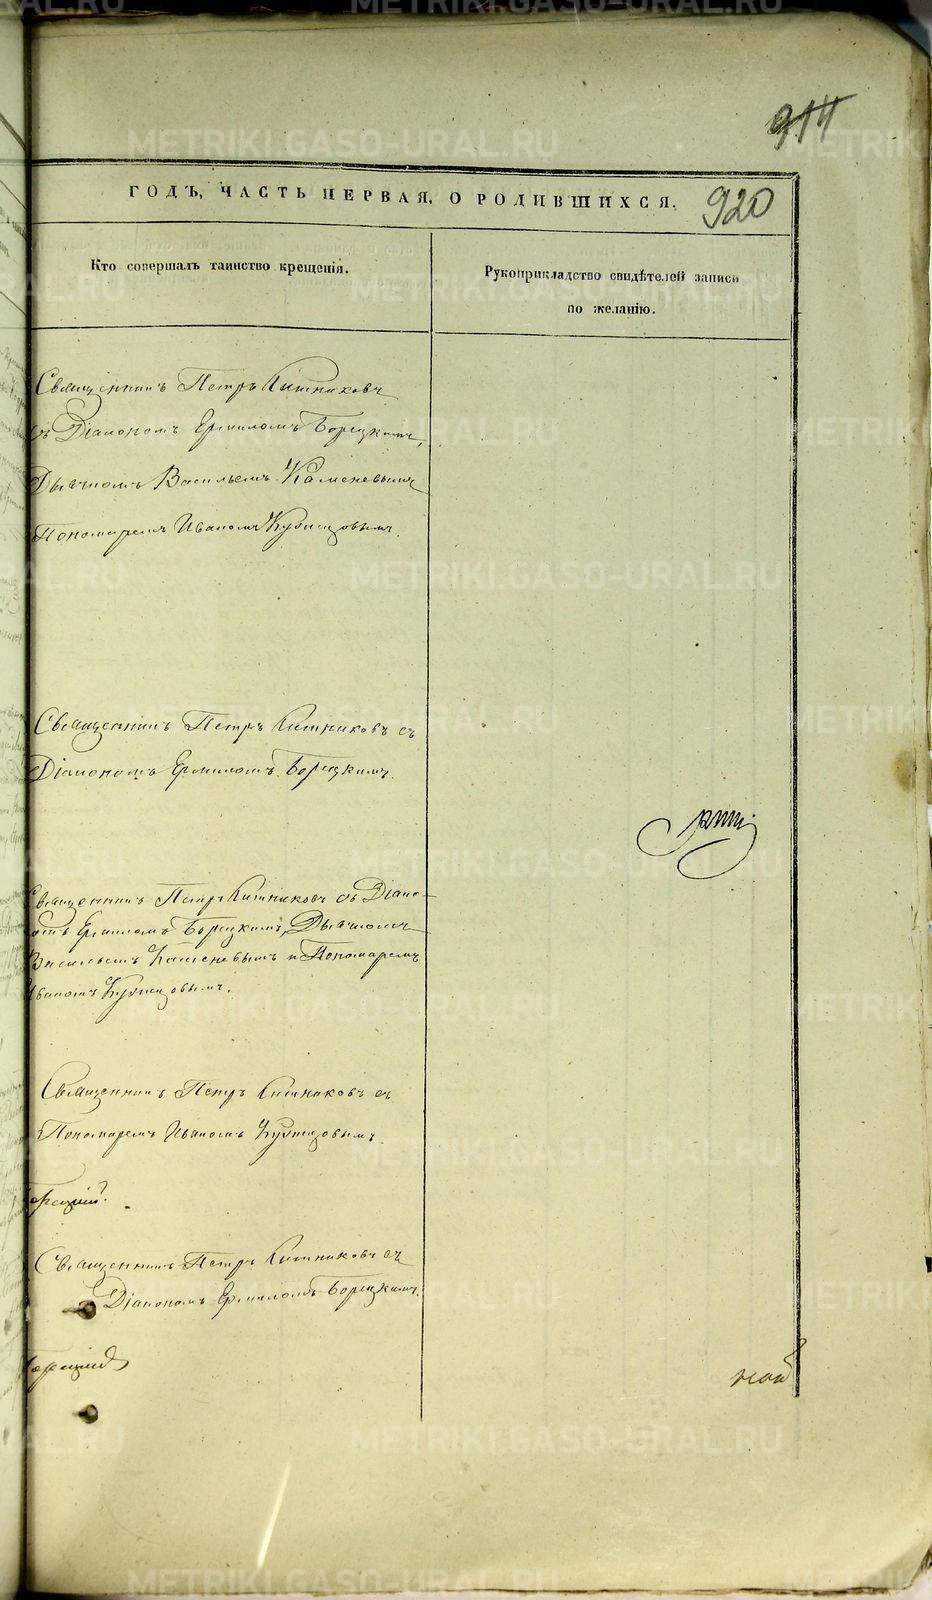 914
ГОДЪ, ЧАСТЬ ПЕРВАЯ, О РОДИВШИХСЯ.
920
Кто совершалъ таинство крещенія.
Рукоприкладство свидѣтелей записи
по желанію.
Священникъ Петръ Китниковъ
съ Діакономъ Ермиломъ Борецкимъ,
Дьячкомъ Васильемъ Каменевымъ
Пономаремъ Иваномъ Кузнецовымъ.
Священникъ Петръ Китниковъ съ
Діакономъ Ермиломъ Борецкимъ.
Священникъ Петръ Китниковъ съ Діако-
омъ Ермиломъ Борецкимъ, Дьячкомъ
Васильемъ Каменевымъ и Пономаремъ
Иваномъ Кузнецовымъ.
Священникъ Петръ Китниковъ съ
Пономаремъ Иваномъ Кузнецовымъ.
Священникъ Петръ Китниковъ съ
Діакономъ Ермиломъ Борецкимъ.
METRIKI.GASO-URAL.RU